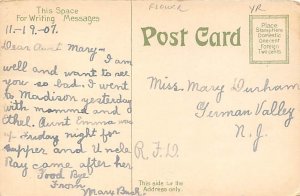 This Space
For Writing Messages
FLOWER
YR
11-19-07.
Dear Aunt Mary- I am
well and want to see
you so bad. I went
to Madison yesterday
with momma and
Ethel. Aunt Emma was
Friday night for
supper and Uncle
Ray came after her
Good Bye
From
Mary Bush
Post Card
Place
Stamp Here
Domestic
One cent
Foreign
Two cents
Miss. Mary Durham
German Valley
N. J.
R.F.D.
This side is for the
Address only.